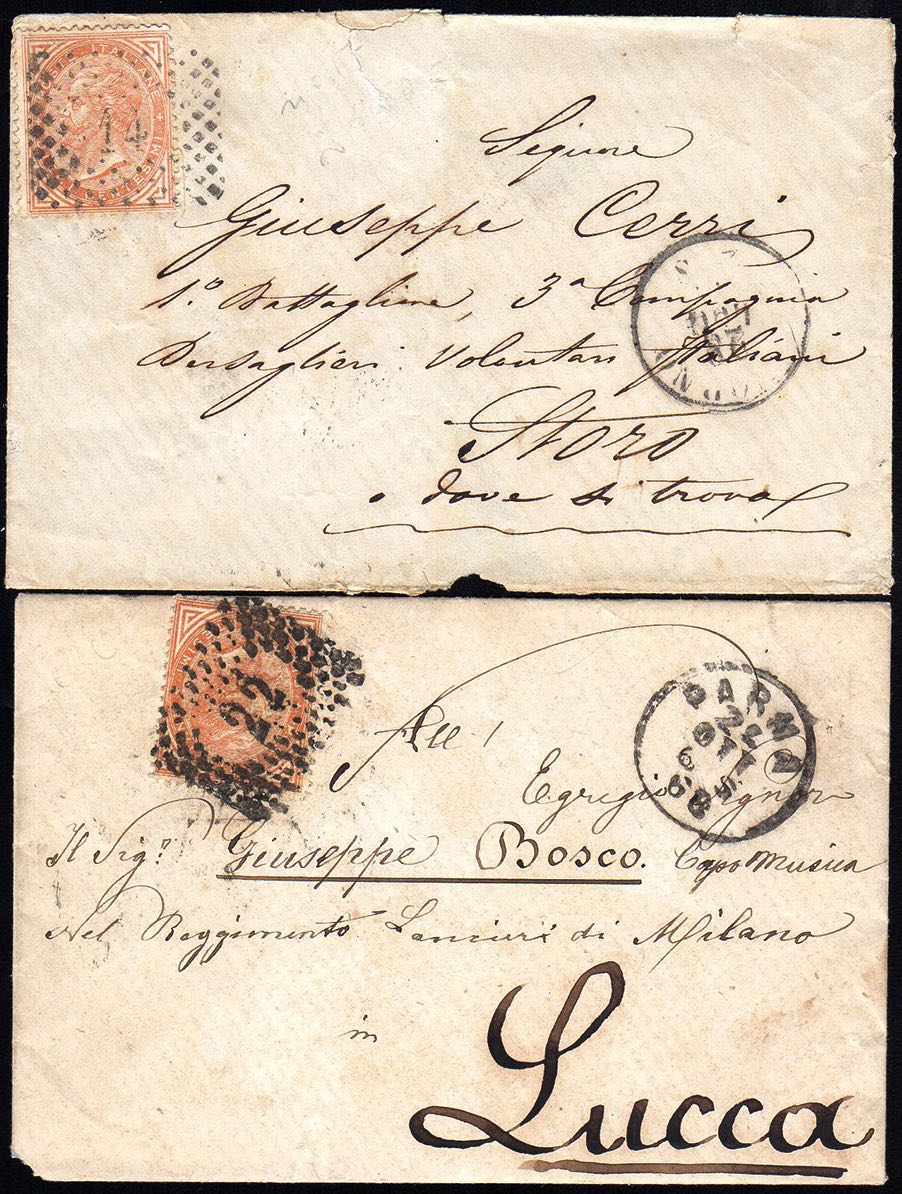 14
Signore
Giuseppe Cerri
1.º Battaglione, 3ª Compagnia
Bersaglieri Volontari Italiani
Storo
o dove si trova
22
PARMA
22
All'
Egregio Signore
Il Sigr. Giuseppe Bosco. Capo Musica
Nel Reggimento Lancieri di Milano
in
Lucca